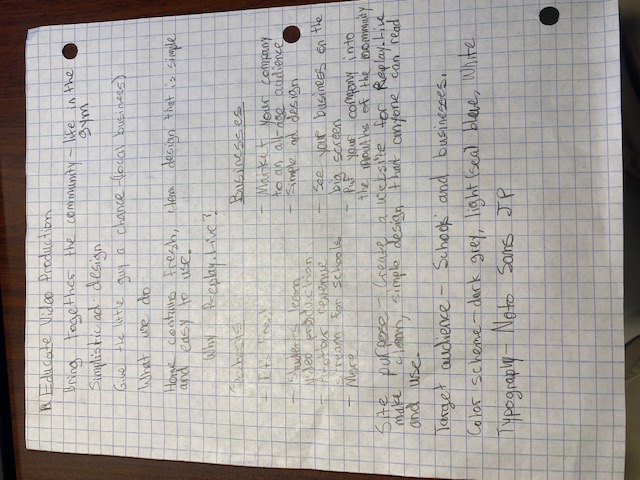 Educate Video Production
Bring together the community - life in the gym
Simplistic ad design
Give the little guy a chance - (local business)
What we do
Home contains fresh, clean design that is simple
and easy to use.
Why Replay.Live?
Schools
- It's free!
- Students learn
video production
- Another revenue
stream for schools
- More
Businesses
- Market your company
to an all-age audience
- Simple ad design
- See your business on the
big screen
- Put your company into
the mouths of the community
Site purpose - Create a website for Replay.Live
make clean, simple design that anyone can read
and use.
Target audience - Schools and businesses.
Color scheme - dark grey, light (seal) blue, White
Typography - Noto Sans JP